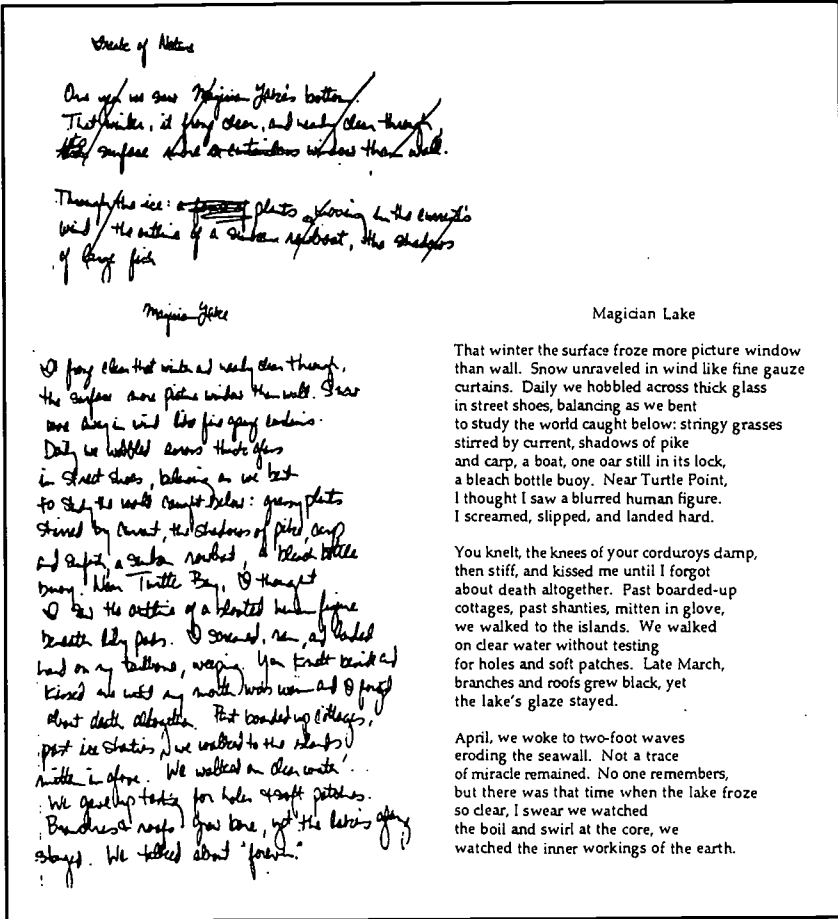 Freak of Nature
One year we saw Magician Lake's bottom.
That winter, it froze clear, and nearly clear through,
the surface more a window than wall.
Through the ice: plants moving in the current's
wind, the outline of a sunken rowboat, the shadows
of large fish
Magician Lake
It froze clear that winter and nearly clear through,
the surface more picture window than wall. Snow
in wind like fine gauzy curtains.
Daily we wobbled across thick glass
in street shoes, balancing as we bent
to study the world caught below: grassy plants
stirred by current, the shadows of pike, carp
and a sunken rowboat, a bleach bottle
buoy. Near Turtle Bay, I thought
I saw the outline of a bloated human figure
beneath lily pads. I screamed, ran, and landed
hard on my tailbone, weeping. You knelt and
kissed me until my mouth was warm and I forgot
about death altogether. Past boarded up cottages,
past ice shanties, we walked to the islands
mitten in glove. We walked on clear water.
We gave up testing for holes & soft patches.
Branches & roofs grew bare, yet the lake's glaze
stayed. We talked about "forever."
Magician Lake
That winter the surface froze more picture window
than wall. Snow unraveled in wind like fine gauze
curtains. Daily we hobbled across thick glass
in street shoes, balancing as we bent
to study the world caught below: stringy grasses
stirred by current, shadows of pike
and carp, a boat, one oar still in its lock,
a bleach bottle buoy. Near Turtle Point,
I thought I saw a blurred human figure.
I screamed, slipped, and landed hard.
You knelt, the knees of your corduroys damp,
then stiff, and kissed me until I forgot
about death altogether. Past boarded-up
cottages, past shanties, mitten in glove,
we walked to the islands. We walked
on clear water without testing
for holes and soft patches. Late March,
branches and roofs grew black, yet
the lake's glaze stayed.
April, we woke to two-foot waves
eroding the seawall. Not a trace
of miracle remained. No one remembers,
but there was that time when the lake froze
so clear, I swear we watched
the boil and swirl at the core, we
watched the inner workings of the earth.